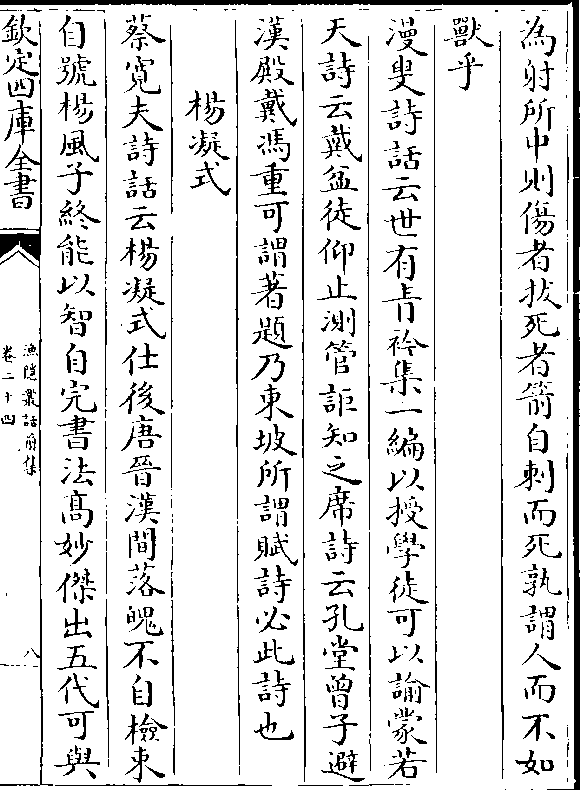 為射所中則傷者拔死者箭自刺而死孰謂人而不如
獸乎
漫叟詩話云世有青衿集一編以授學徒可以諭蒙若
天詩云戴盆徒仰止測管詎知之席詩云孔堂曾子避
漢殿戴馮重可謂著題乃東坡所謂賦詩必此詩也
楊凝式
蔡寛夫詩話云楊凝式仕後唐晉漢間落魄不自檢束
自號楊風子終能以智自完書法高妙傑出五代可與
欽定四庫全書
漁隠叢話前集
卷二十四
八